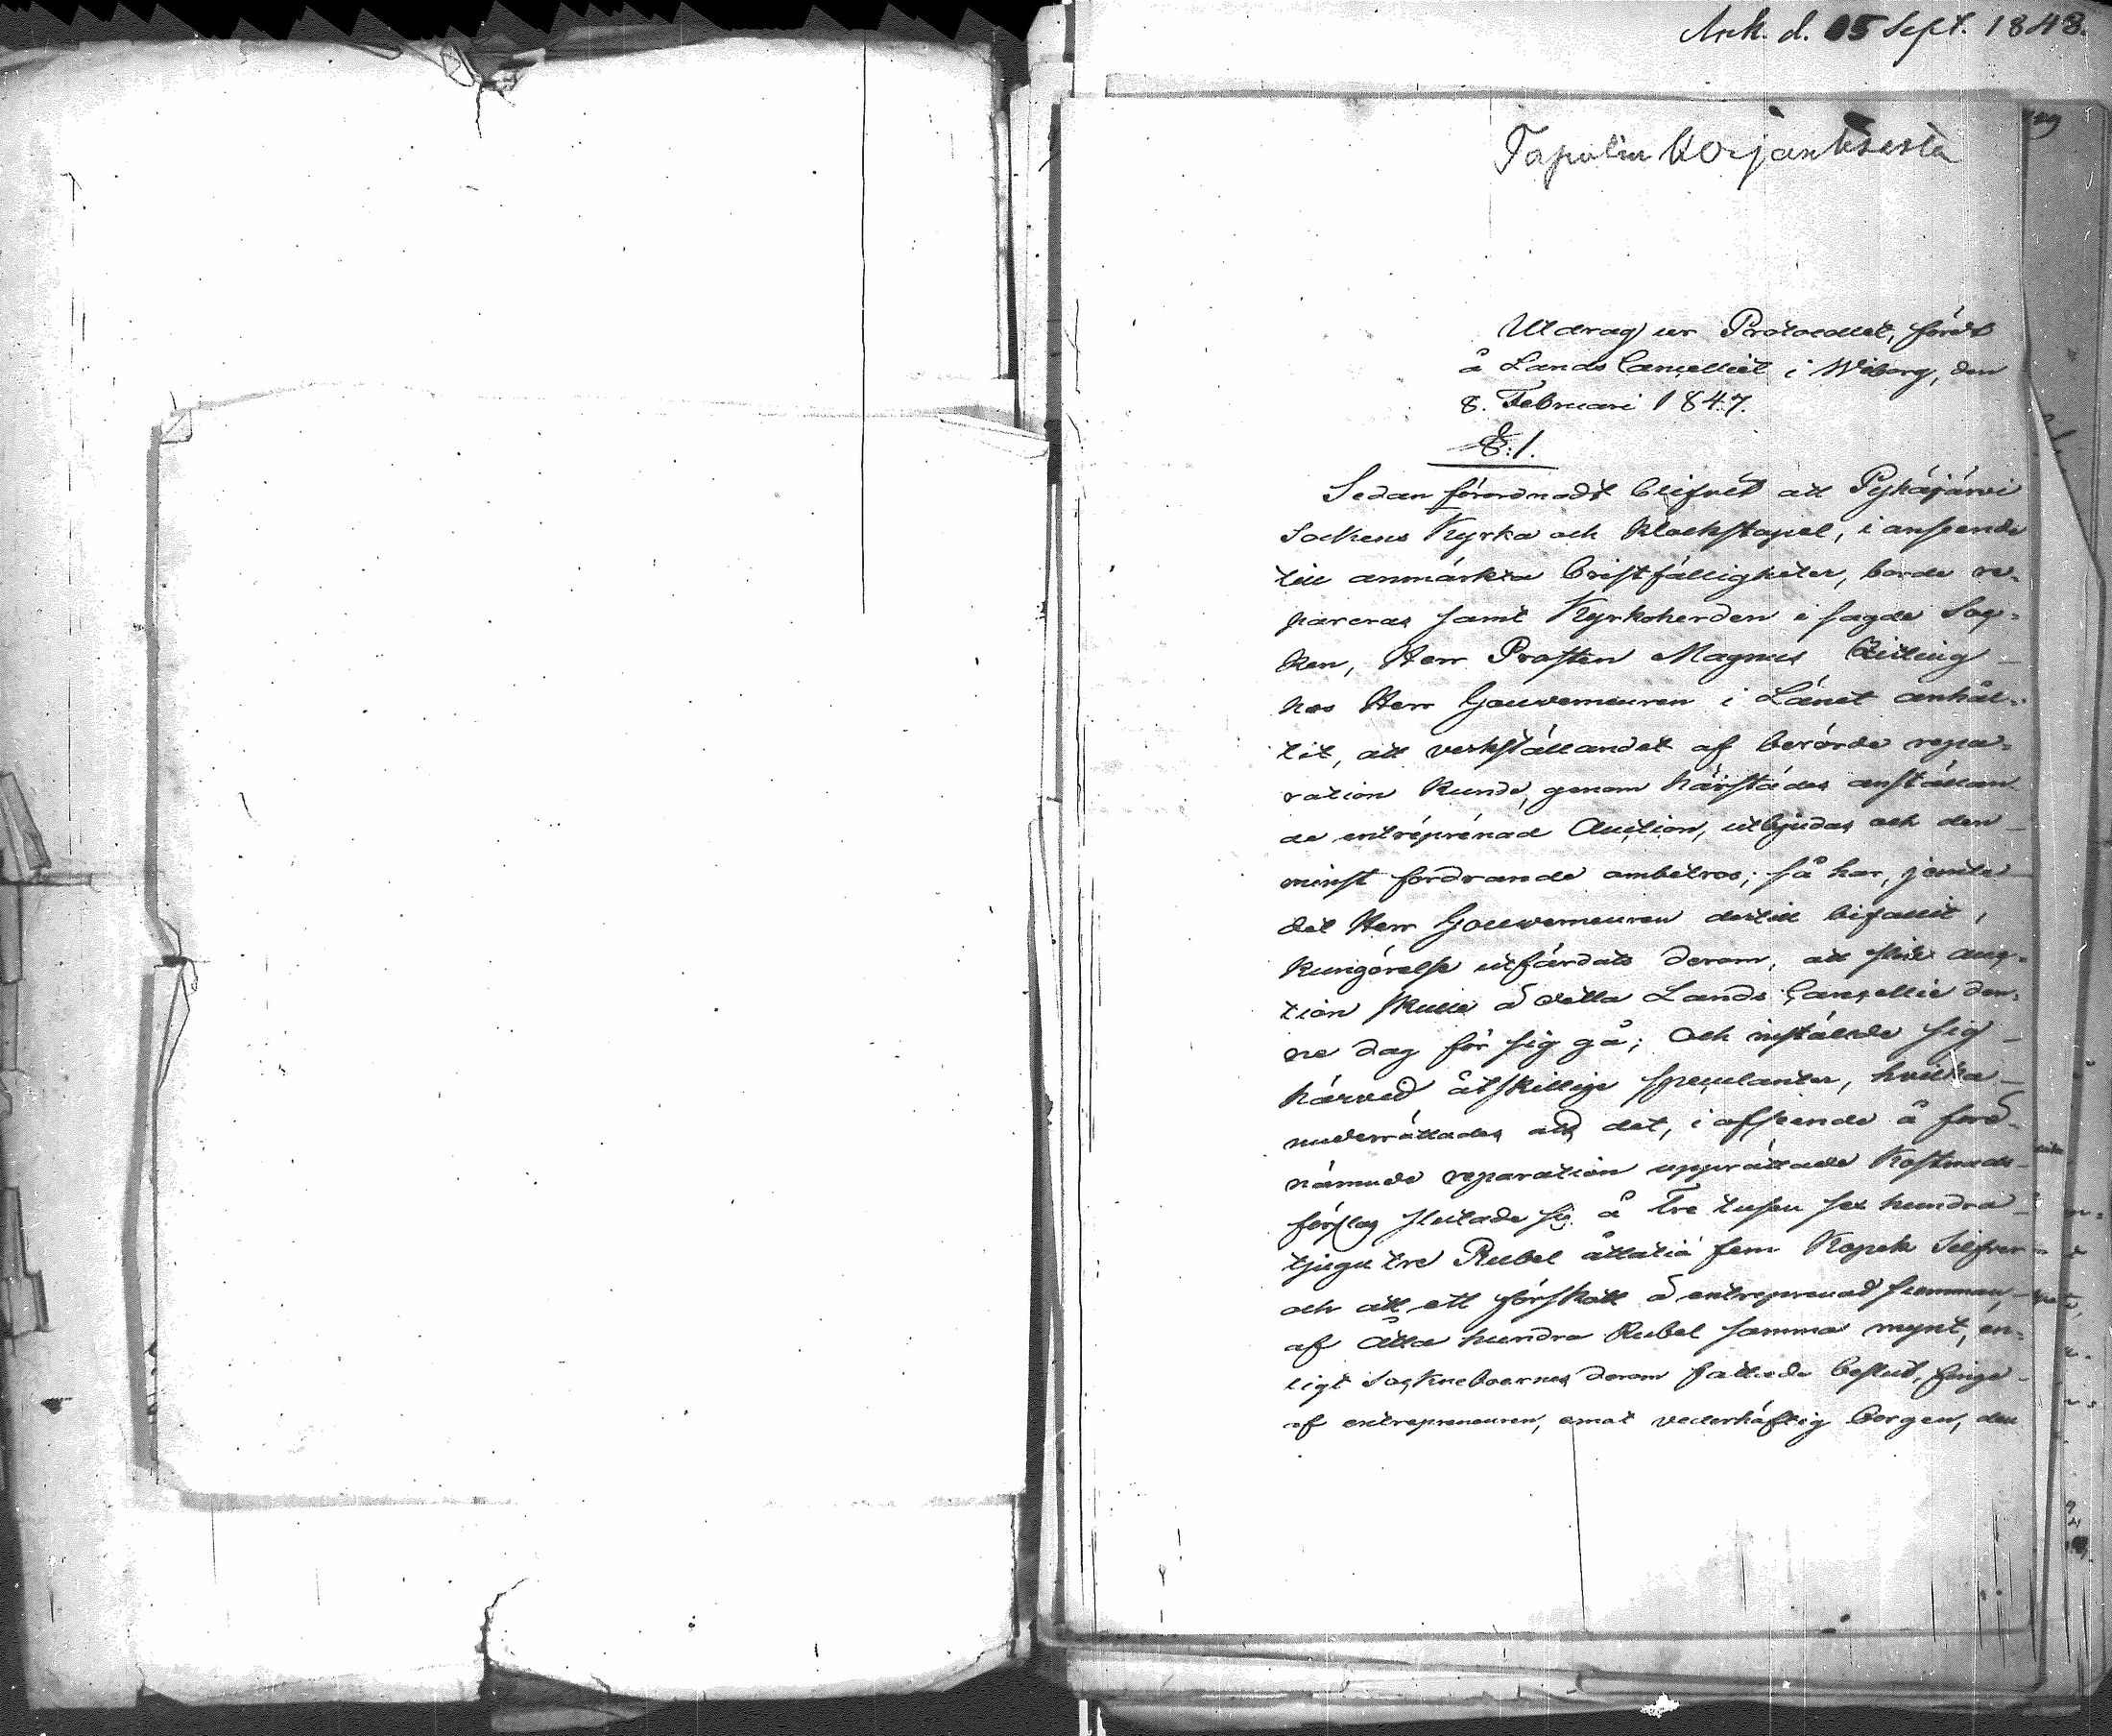 Ank. d. 05 Sept. 1848.
129
Tapulin korjauksesta
Utdrag ur Protocollet, fördt
å Lands Cancelliet i Wiborg, den
8. Februari 1847.
§:1.
Sedan förordnadt blifvit att Pyhäjärvi
Sockens Kyrka och Klockstapel, i anseende
till anmärkta bristfälligheter, borde re-
pareras samt Kyrkoherden i sagde Soc-
ken, Herr Prosten Magnus Zitting
hos Herr Gouverneuren i Länet anhål-
lit, att verkställandet af berörde repa-
ration kunde, genom härstädes anställan-
de entreprenad Auction, utbjudas och den
minst fordrande ombetros; så har, jemte
det Herr Gouverneuren dertill bifallit,
kungörelse utfärdats derom, att slik auc-
tion skulle å detta Lands Cancellie den-
ne dag för sig gå; Och instälde sig
härvid åtskillige speculanter, hvilka
underrättades att det, i afseende å före-
nämnde reparation upprättade Kostnads-
förslag slutade sig å Tre tusen sex hundra
tjugu tre Rubel åttatio fem Kopek Silfver
och att ett förskott å entreprenad summan,
af Åtta hundra Rubel samma mynt, en-
ligt Sockneboernes derom fattade beslut, finge
af entrepreneuren, emot vederhäftig borgen, den